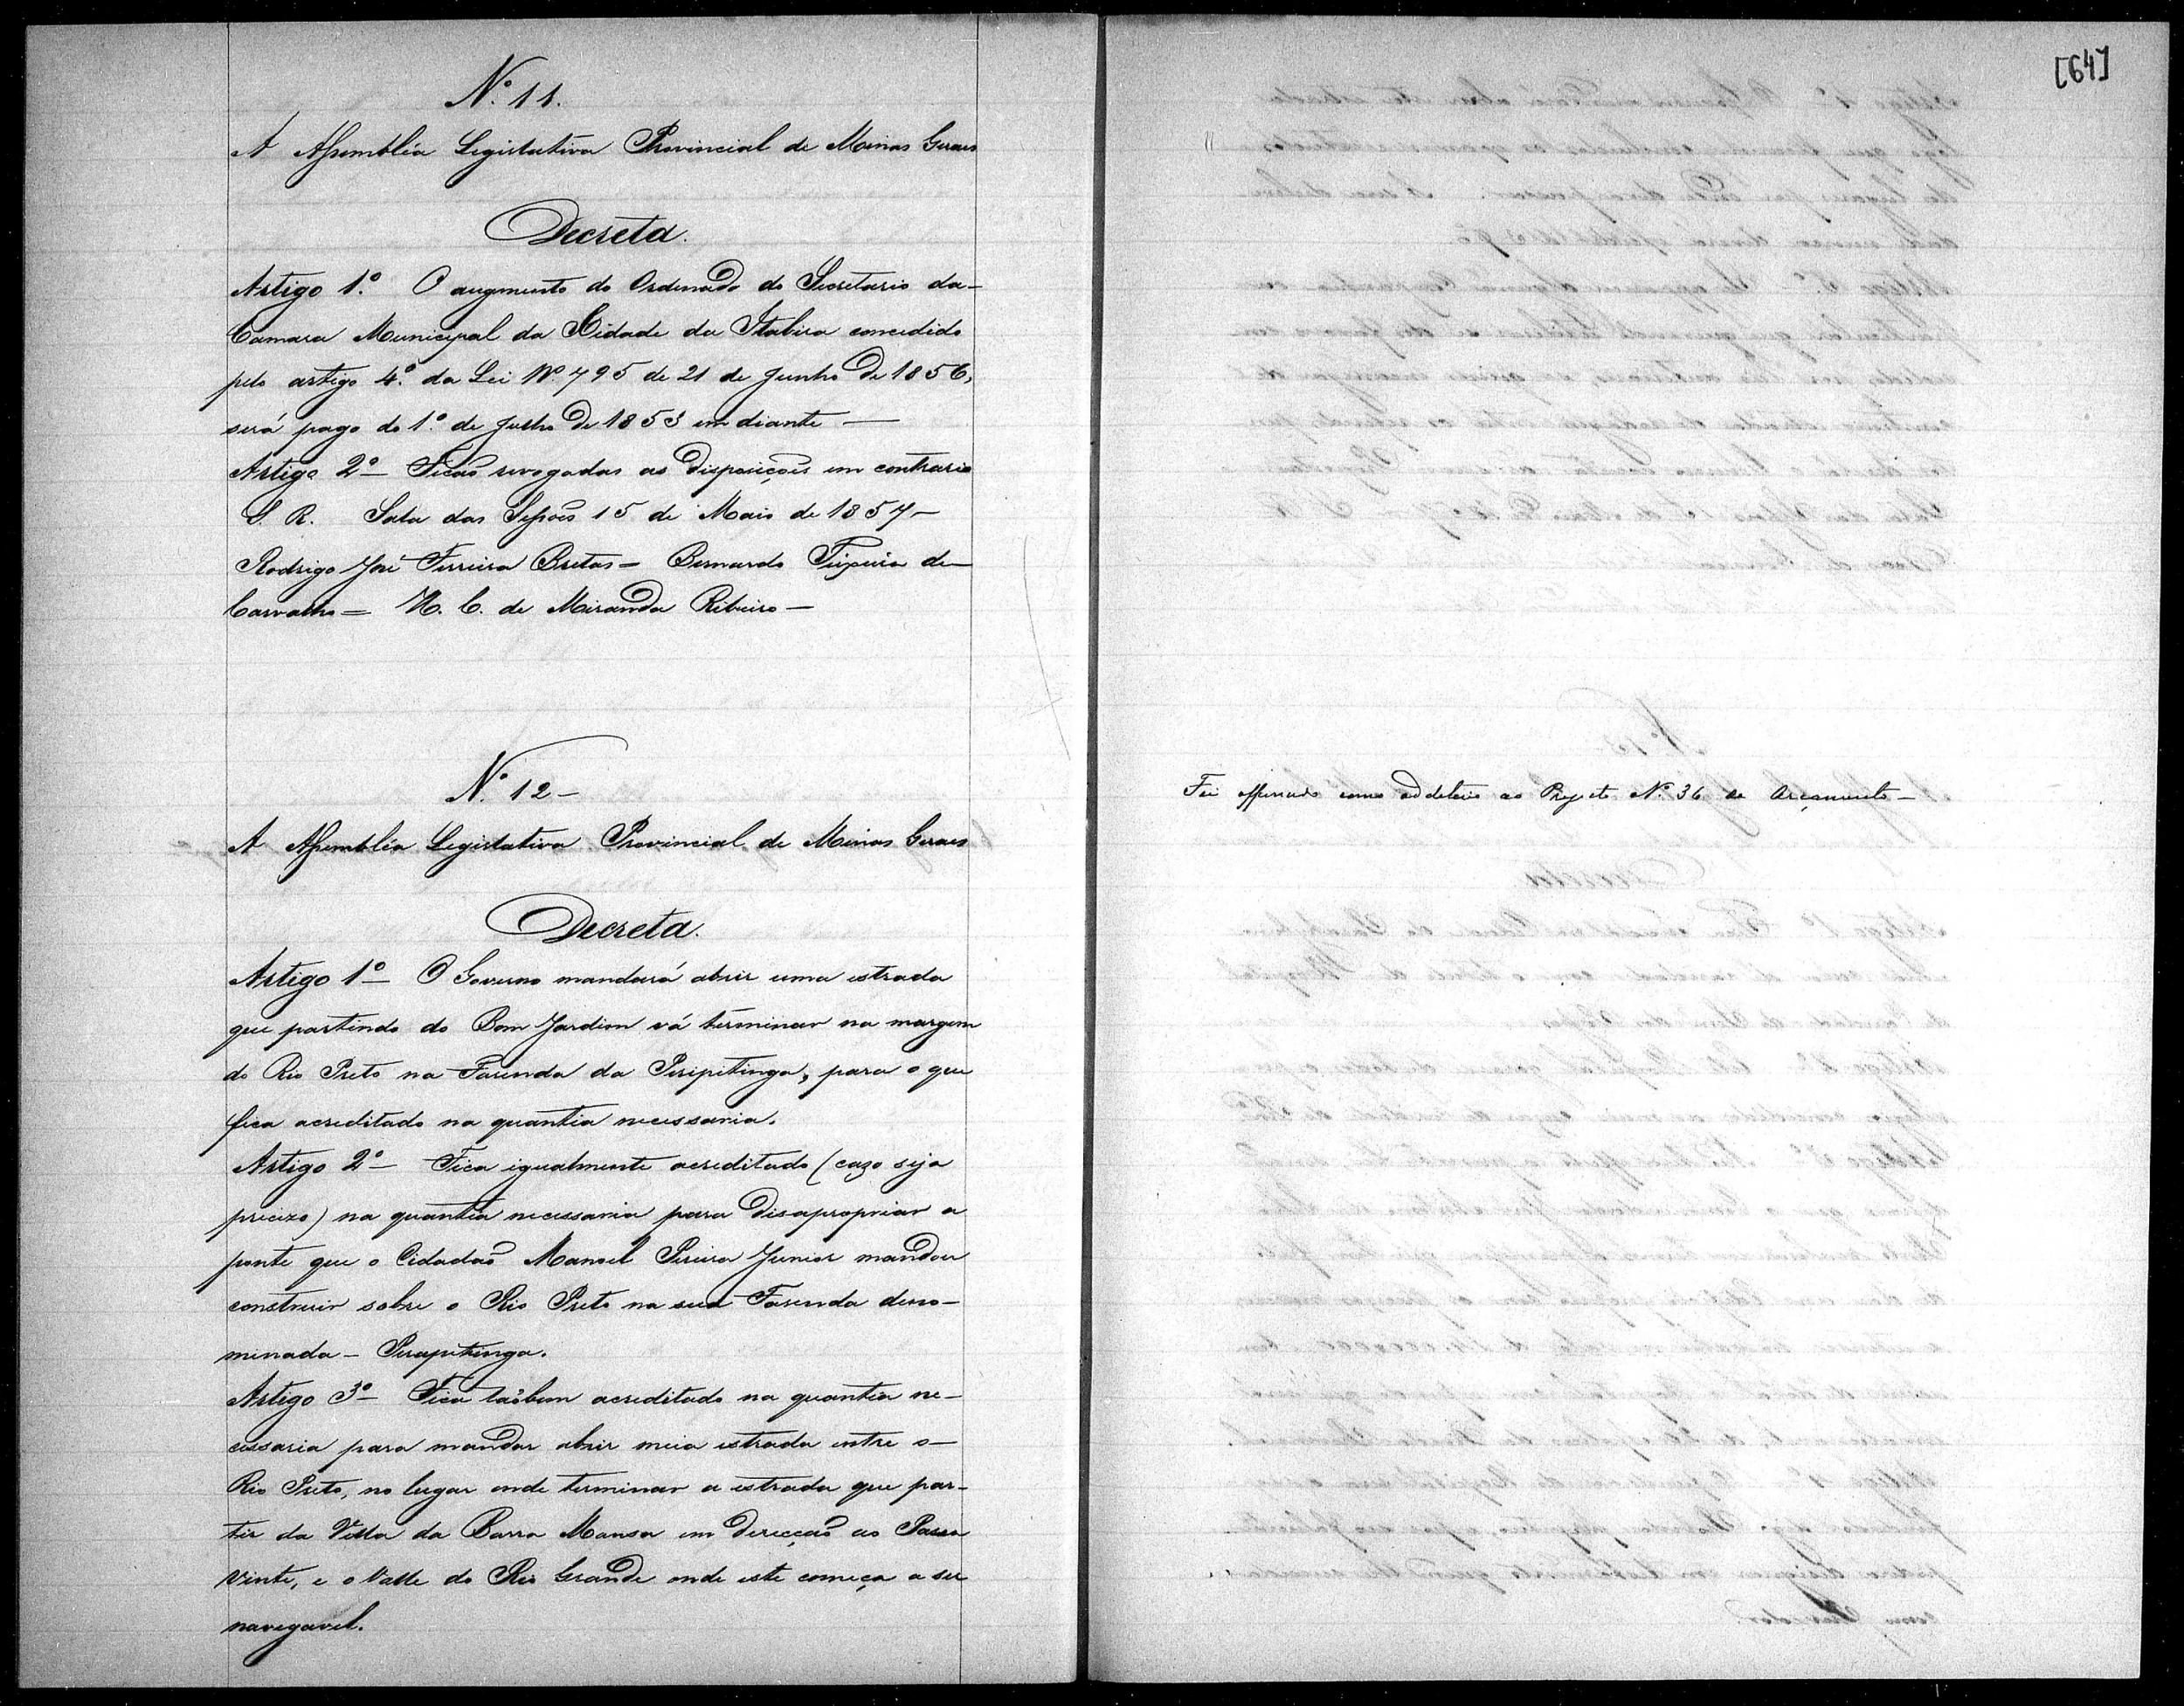 Nº 11.
A Assembléa Legislativa Provincial de Minas Geraes
Decreta.
Artigo 1.º O augmento do Ordenado do Secretario da-
Camara Municipal da Cidade da Itabira concedido
pelo artigo 4.º da Lei Nº 795 de 21 de Junho de 1856,
será pago do 1.º de Julho de 1853 em diante —
Artigo 2º — Ficaõ revogadas as disposiçoẽs em contrario
S. R. Sala das Sessoẽs 15 de Maio de 1857 —
Rodrigo José Ferreira Bretas = Bernardo Teixeira de-
Carvalho = H. C. de Miranda Ribeiro —
Nº 12 —
A Assembléa Legislativa Provincial de Minas Geraes
Decreta.
Artigo 1º — O Governo mandará abrir uma estrada
que partindo do Bom Jardim vá terminar na margem
do Rio Preto na Fazenda da Piripitinga, para o que
fica acreditado na quantia necessaria.
Artigo 2º — Fica igualmente acreditado (cazo seja
precizo) na quantia necessaria para disapropriar a
ponte que o Cidadaõ Manoel Pereira Junior mandou
construir sobre o Rio Preto na sua Fazenda deno-
minada — Pirapitinga.
Artigo 3º — Fica taõbem acreditado na quantia ne-
cessaria para mandar abrir meia estrada entre o-
Rio Preto, no lugar onde terminar a estrada que par-
tir da Villa da Barra Mansa em direcçaõ ao Passa
vinte, e o Valle do Rio Grande onde este começa a ser
navegavel.
[64]
Foi offerecido como additivo ao Projecto Nº 36 de Orçamento —